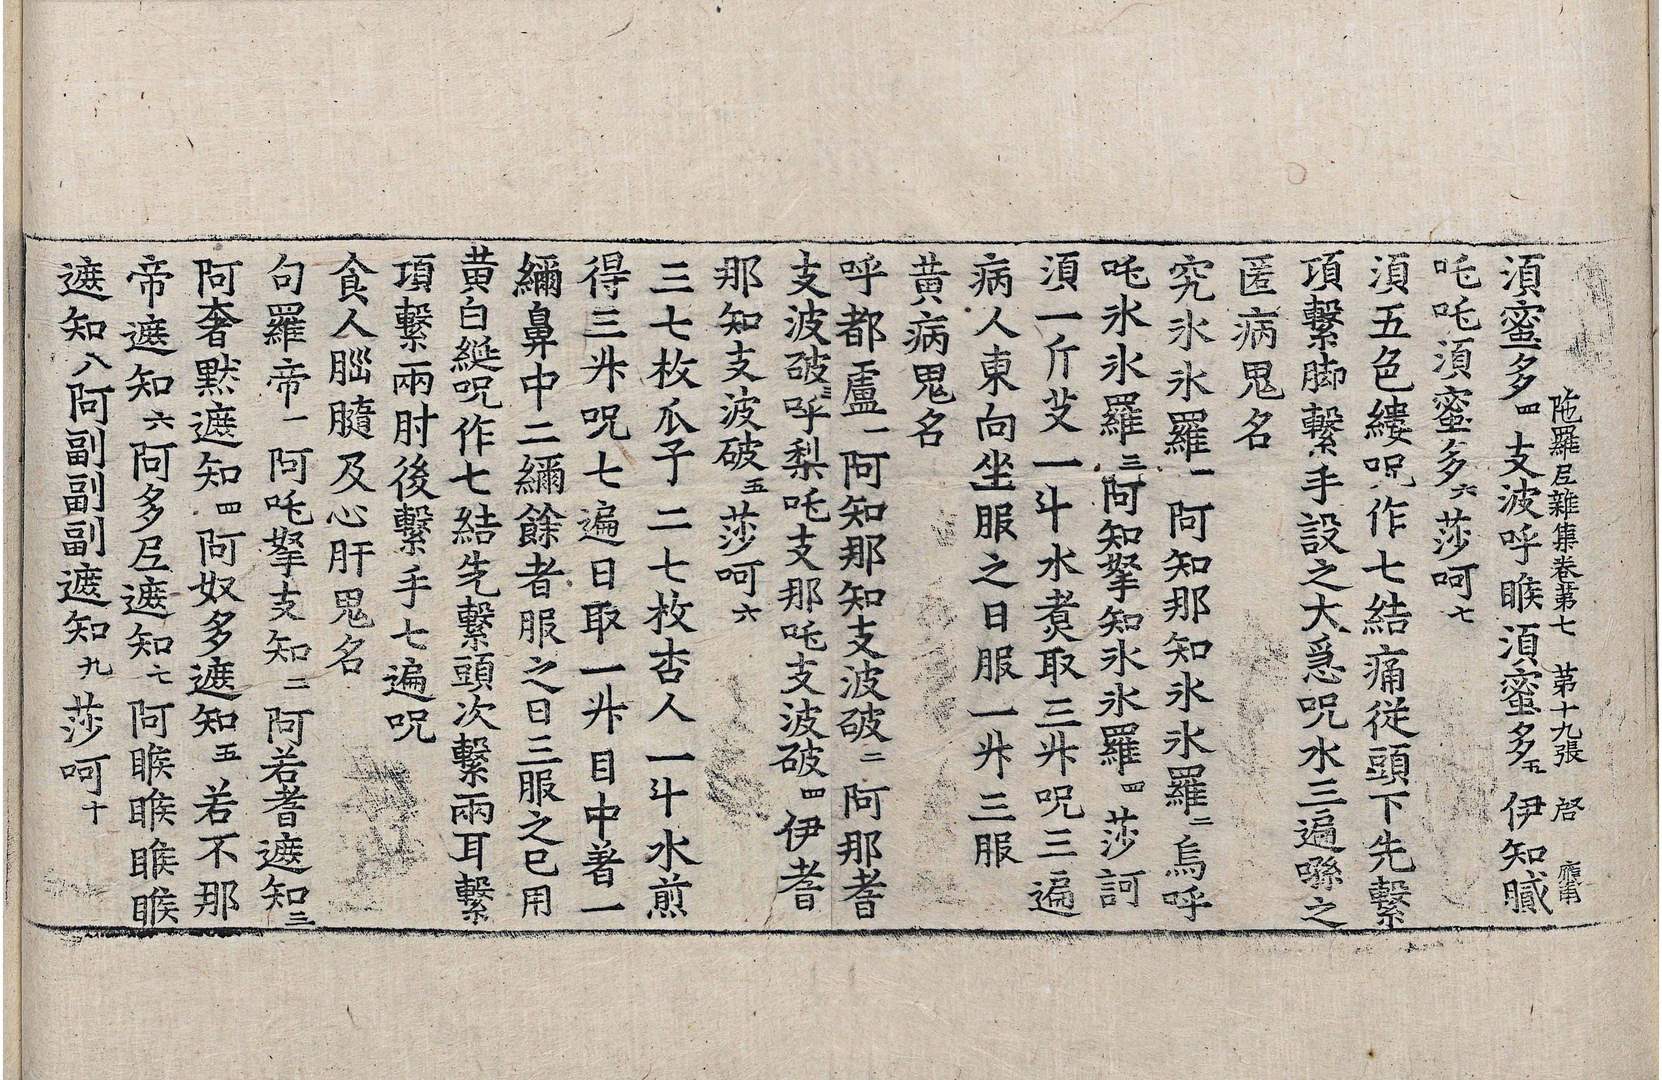 陁羅尼雜集卷第七 第十九張 啓
須蜜多四支波呼睺須蜜多五伊知膩
吒吒須蜜多六莎呵七
須五色縷呪作七結痛從頭下先繫
項繫脚繫手設之大急呪水三遍噀之
匿病鬼名
究氷氷羅一阿知那知氷氷羅二烏呼
吒氷氷羅三阿知拏知氷氷羅四莎訶
須一斤艾一斗水煑取三升呪三遍
病人東向坐服之日服一升三服
黄病鬼名
呼都盧一阿知那知支波破二阿那耆
支波破三呼梨吒支那吒支波破四伊耆
那知支波破五莎呵六
三七枚瓜子二七枚杏人一斗水煎
得三升呪七遍日取一升目中著一
綿鼻中二綿餘者服之日三服之已用
黄白綖呪作七結先繫頭次繫兩耳繫
項繫兩肘後繫手七遍呪
食人腦髓及心肝鬼名
句羅帝一阿吒拏支知二阿若耆遮知三
阿奢黙遮知四阿奴多遮知五若不那
帝遮知六阿多尼遮知七阿睺睺睺睺
遮知八阿副副副遮知九莎呵十